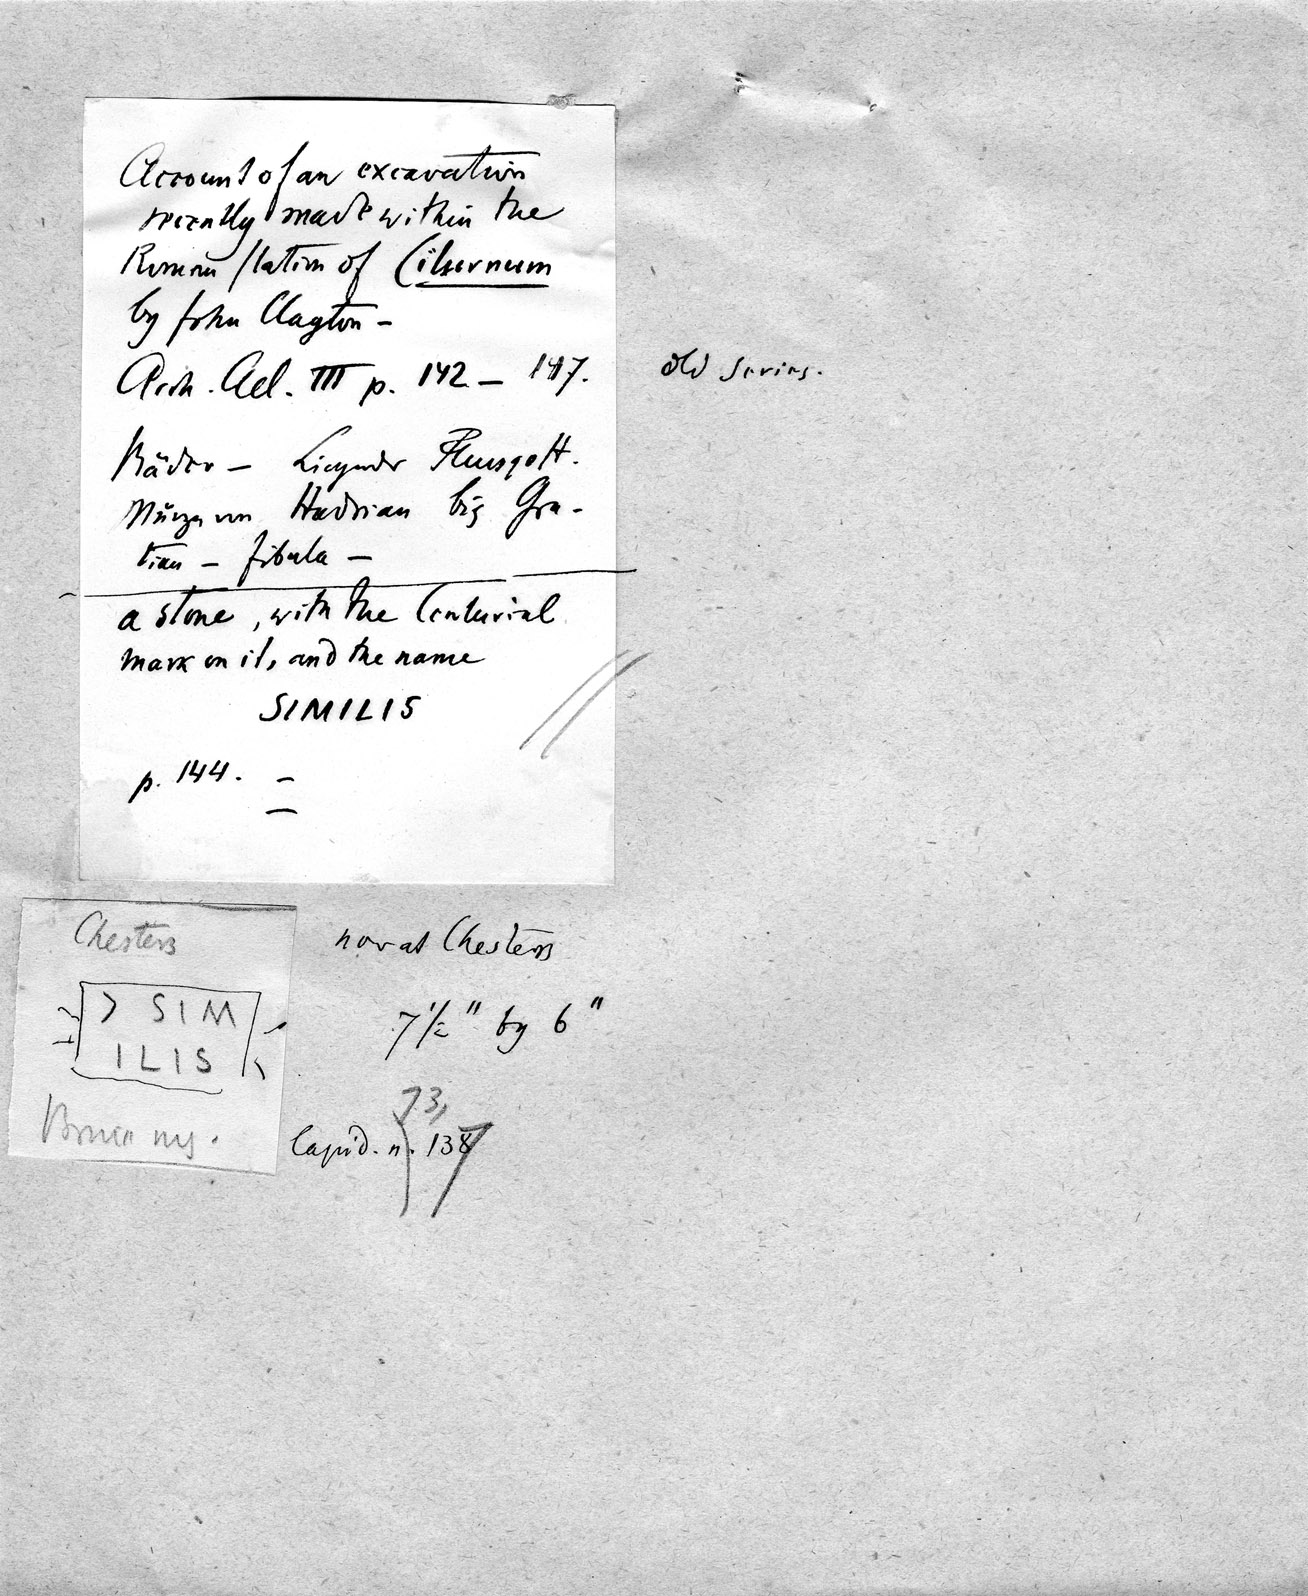 Account of an excavation
recently made within the
Roman Station of Cilurnum
by John Clayton –
Arch. Ael. III p. 142 – 147.
old series.
Bäder – Liegender Flussgott.
Münzen von Hadrian bis Gra-
tian – fibula –
a stone, with the Centurial
mark on it, and the name
SIMILIS
p. 144. –
Chesters
now at Chesters
> SIM
ILIS
7 1/2" by 6"
73,
Bruce
Lapid. n. 138